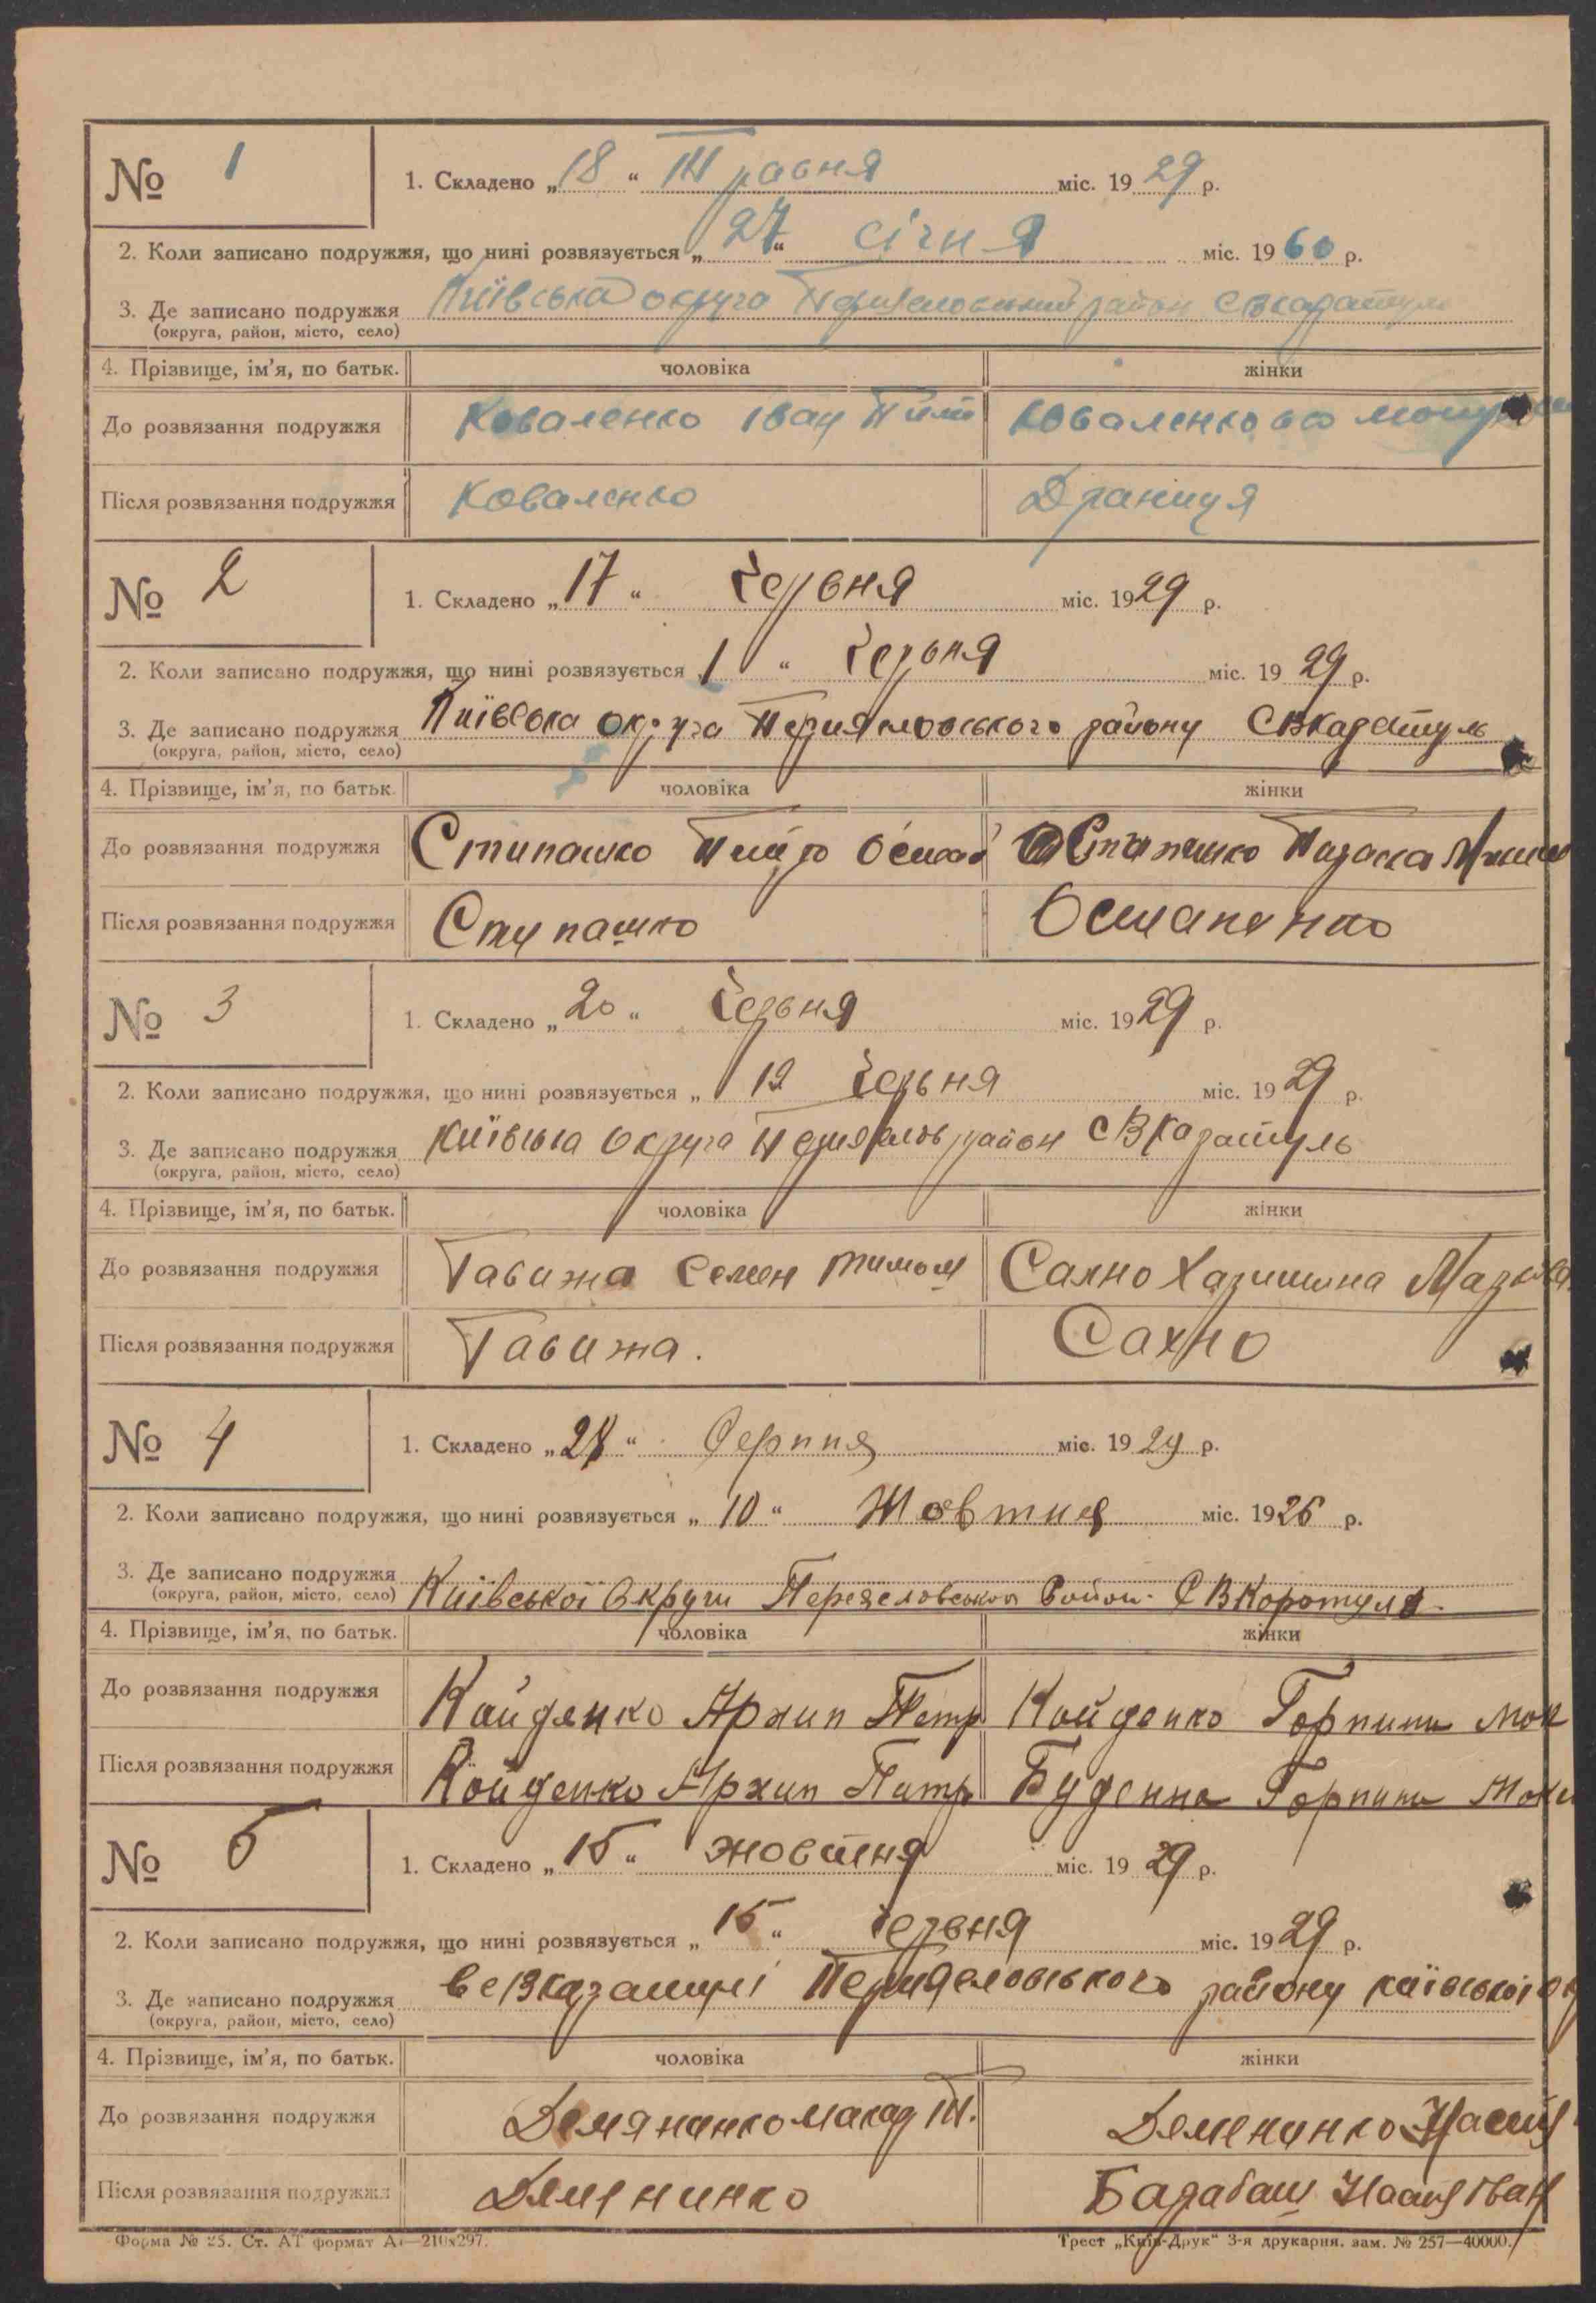 № 1
1. Складено „18“ Травня міс. 1929 р.
2. Коли записано подружжя, що нині розвязується „27“ січня міс. 1960 р.
3. Де записано подружжя Київська округа район
(округа, район, місто, село)
4. Прізвище, ім’я, по батьк. чоловіка жінки
До розвязання подружжя Коваленко Іван
Після розвязання подружжя Коваленко Драниця
№ 2
1. Складено „17“ Червня міс. 1929 р.
2. Коли записано подружжя, що нині розвязується „1“ Червня міс. 1929 р.
3. Де записано подружжя Київська округа району СВКаратуль
(округа, район, місто, село)
4. Прізвище, ім’я, по батьк. чоловіка жінки
До розвязання подружжя Параска
Після розвязання подружжя Ступашко Остапенко
№ 3
1. Складено „20“ Червня міс. 1929 р.
2. Коли записано подружжя, що нині розвязується „12 Червня міс. 1929 р.
3. Де записано подружжя Київська округа район СВКаратуль
(округа, район, місто, село)
4. Прізвище, ім’я, по батьк. чоловіка жінки
До розвязання подружжя Гавижа Семен Тимош Сахно
Після розвязання подружжя Гавижа. Сахно
№ 4
1. Складено „28“ Серпня міс. 1929 р.
2. Коли записано подружжя, що нині розвязується „10“ Жовтня міс. 1926 р.
3. Де записано подружжя Київської Округи СВКоротуля.
(округа, район, місто, село)
4. Прізвище, ім’я, по батьк. чоловіка жінки
До розвязання подружжя Кайденко Архип Петр Кайденко Горпина Мок
Після розвязання подружжя Койденко Архип Петр Буденна Горпина
№ 5
1. Складено „15“ жовтня міс. 1929 р.
2. Коли записано подружжя, що нині розвязується „15“ червня міс. 1929 р.
3. Де записано подружжя району київської
(округа, район, місто, село)
4. Прізвище, ім’я, по батьк. чоловіка жінки
До розвязання подружжя Макар
Після розвязання подружжя Барабаш
Форма № 25. Ст. АТ формат А4—210х297.
Трест „Київ-Друк“ 3-я друкарня. зам. № 257—40000.